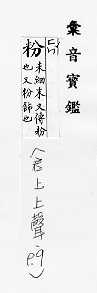 彙音寶鑑
粉
米細末又傅粉
也又粉餙也
(君上上聲 p.9)